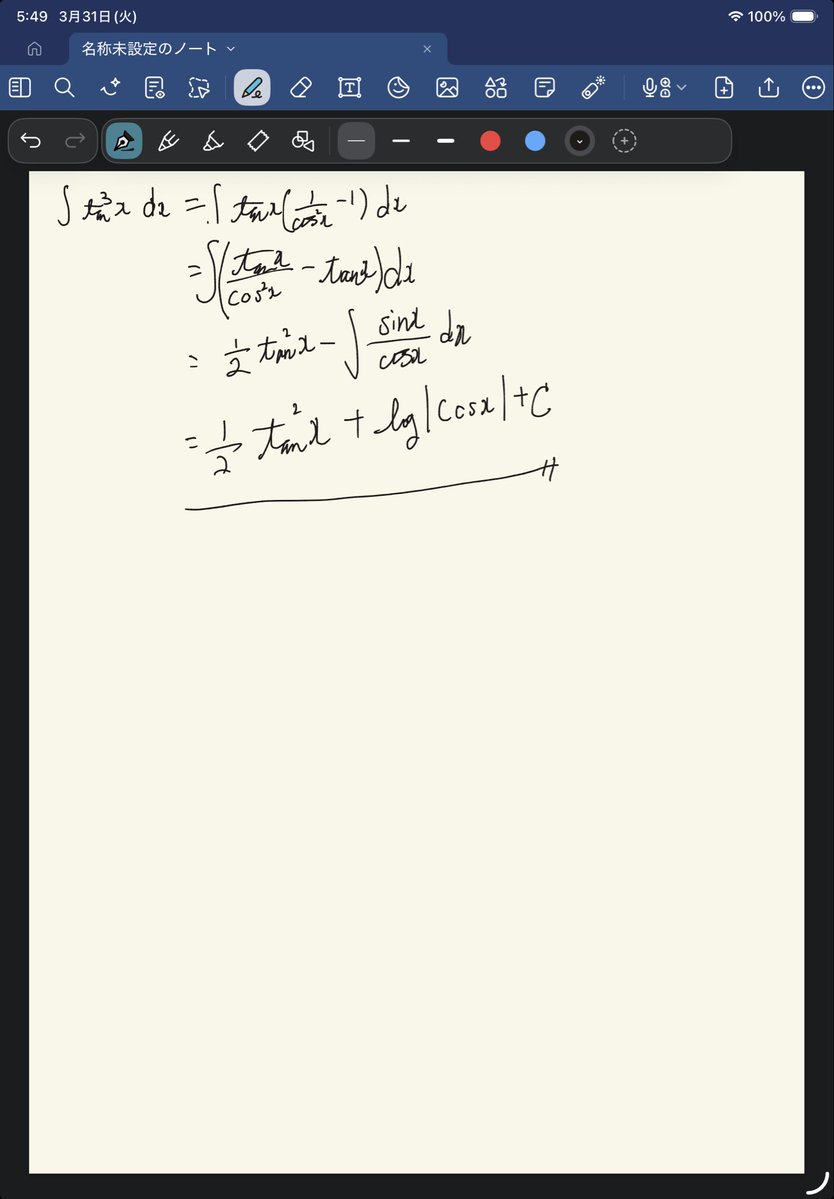 5:49 3月31日(火) 100%
名称未設定のノート
∫ tan³x dx = ∫ tanx(1/cos²x - 1) dx
= ∫(tanx/cos²x - tanx) dx
= 1/2 tan²x - ∫ sinx/cosx dx
= 1/2 tan²x + log|cosx| + C